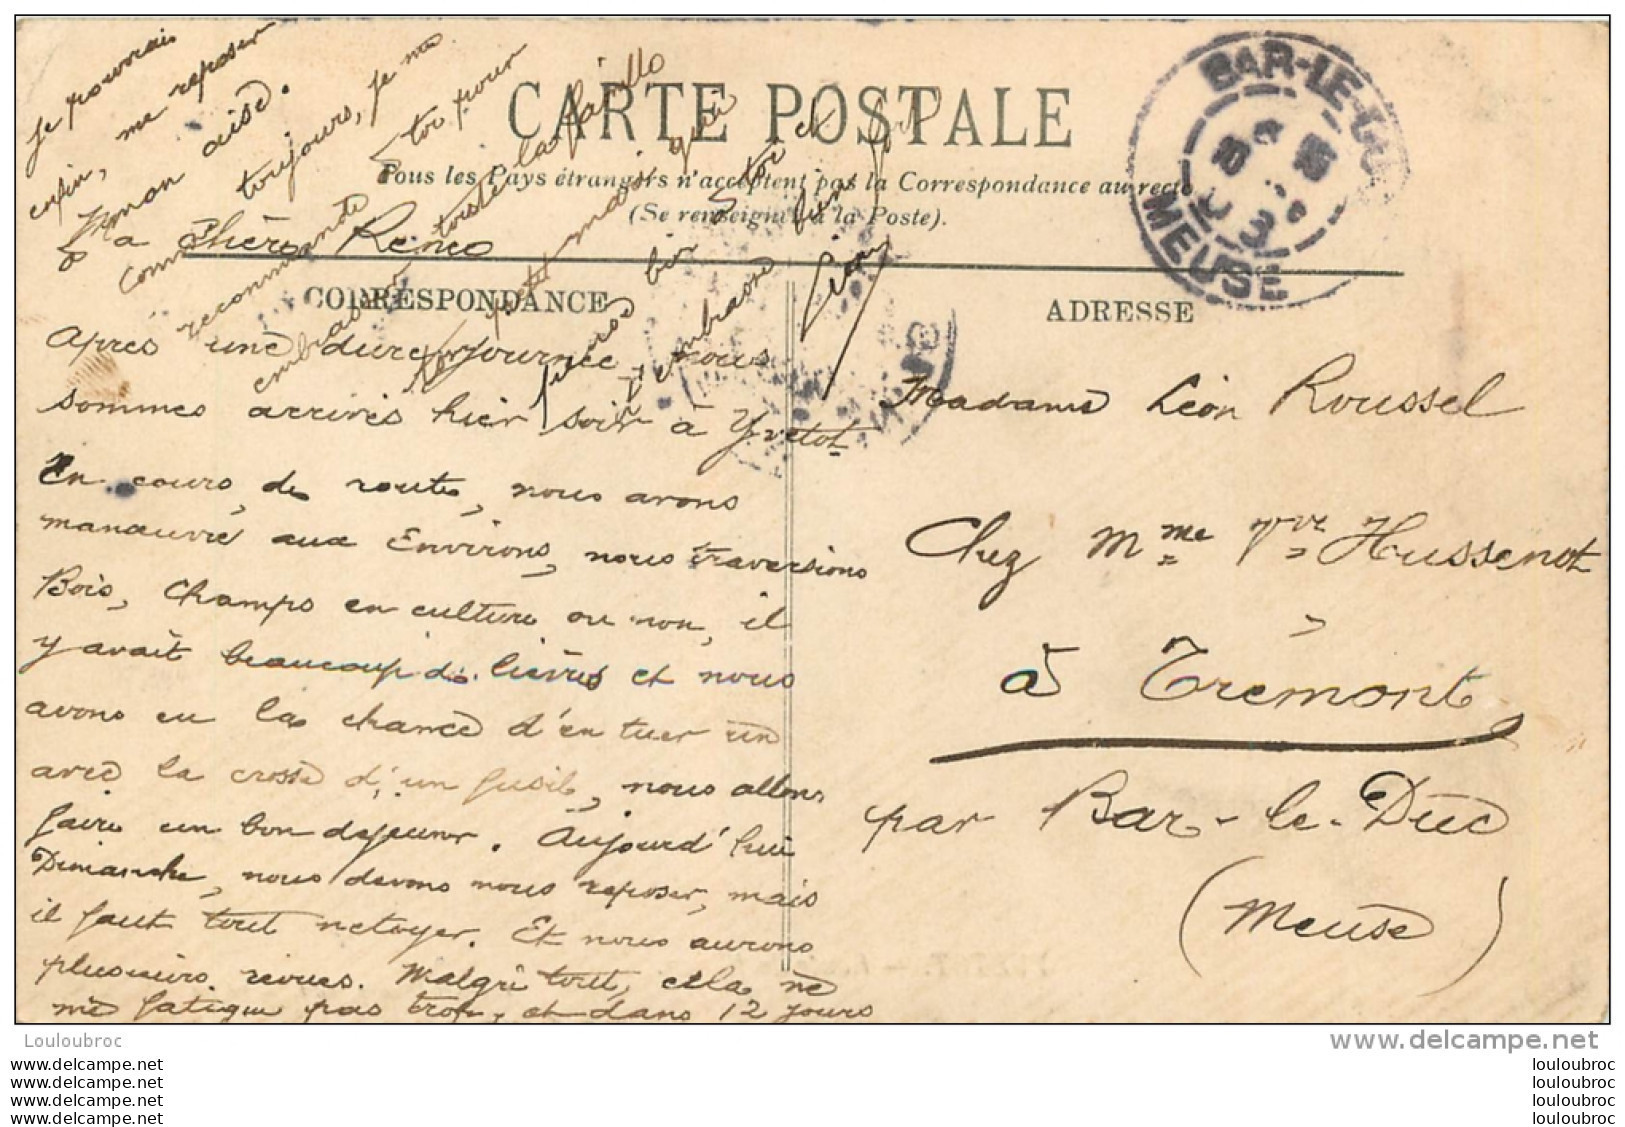 CARTE POSTALE
Tous les Pays étrangers n'acceptent pas la Correspondance au recto
(Se renseigner à la Poste).
CORRESPONDANCE
ADRESSE
BAR-LE-DUC
MEUSE
Ma Chère Renée
Après une dure journée, nous
sommes arrivés hier soir à Yvetot
En cours de route, nous avons
manœuvré aux Environs, nous traversions
Bois, Champs en culture ou non, il
y avait beaucoup de lièvres et nous
avons eu la chance d'en tuer un
avec la crosse d'un fusil, nous allons
faire un bon dejeuner. Aujourd'hui
Dimanche, nous devons nous reposer, mais
il faut tout netoyer. Et nous aurons
plusieurs revues. Malgré tout, cela ne
me fatigue pas trop, et dans 12 jours
Je pourrais
enfin, me reposer
à mon aise.
Comme toujours, je me
recommande à toi pour
embrasser toute la famille
petit mais qui
bien
embrasse
Léon
Madame Léon Roussel
Chez Mme Vve Hussenot
à Trémont
par Bar-le-Duc
(Meuse)
Louloubroc
www.delcampe.net
louloubroc
louloubroc
louloubroc
louloubroc
louloubroc
louloubroc
louloubroc
louloubroc